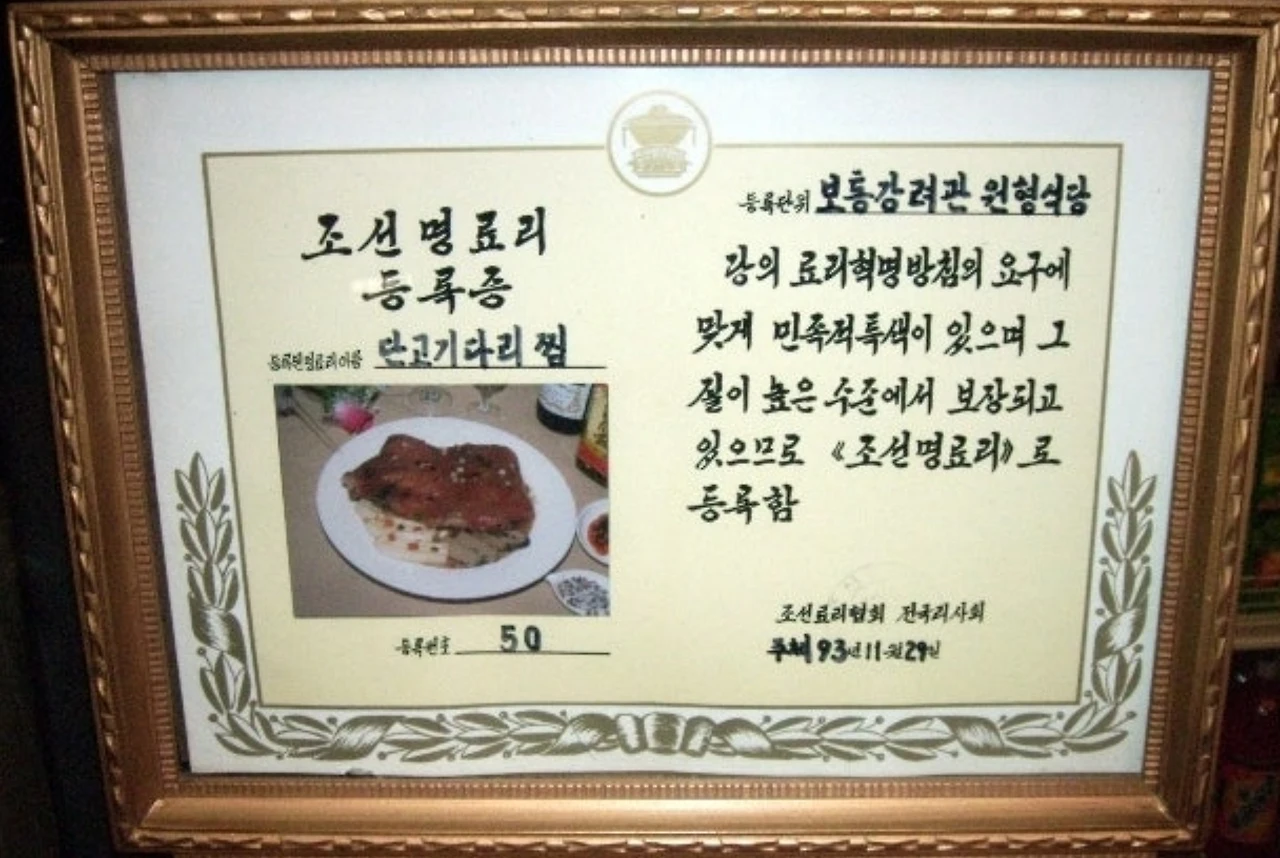 조선명료리
등록증
등록된명료리이름 단고기다리찜
등록번호 50
등록단위 보통강려관 원형식당
당의 료리혁명방침의 요구에
맞게 민족적특색이 있으며 그
질이 높은 수준에서 보장되고
있으므로 《조선명료리》로
등록함
조선료리협회 전국리사회
주체93년11월29일